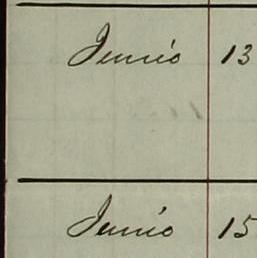 Junio 13
Junio 15